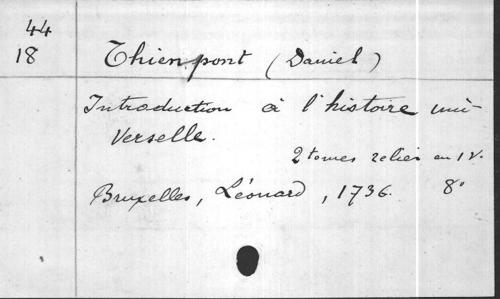 44
18
Thienpont (Daniel)
Introduction à l'histoire uni-
verselle.
2 tomes reliés en 1 v.
Bruxelles, Léonard, 1736. 8°